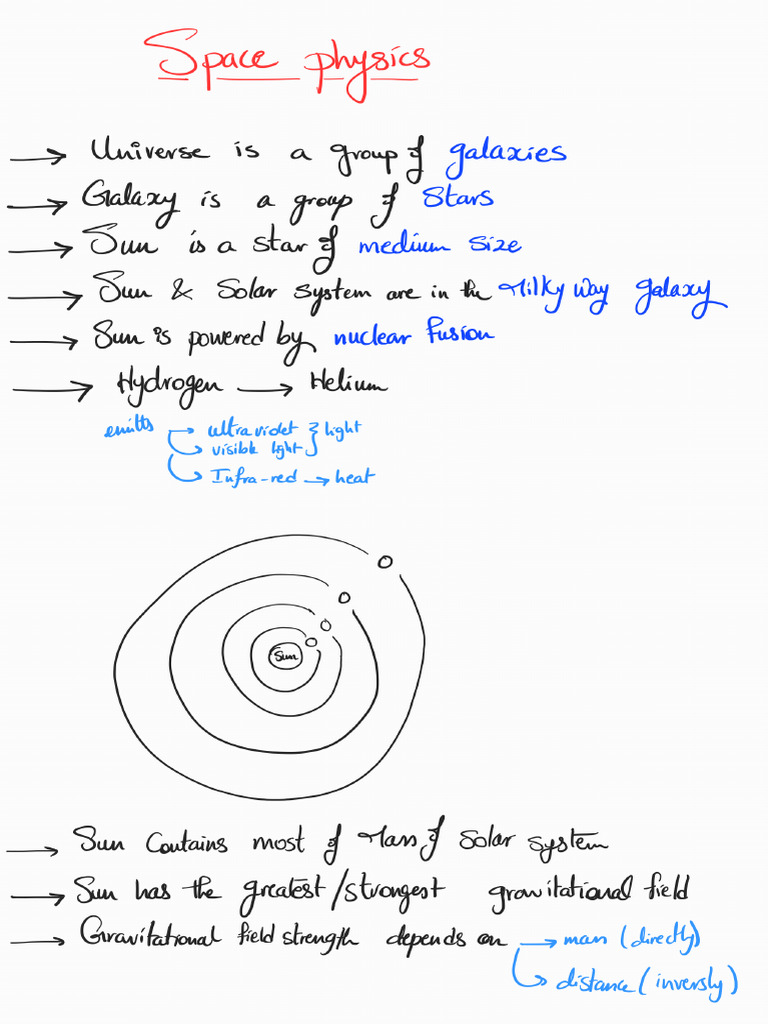 Space physics
→ Universe is a group of galaxies
→ Galaxy is a group of stars
→ Sun is a star of medium size
→ Sun & Solar system are in the Milky Way galaxy
→ Sun is powered by nuclear fusion
→ Hydrogen → Helium
emitts → ultraviolet } light
→ visible light
→ Infra-red → heat
Sun
→ Sun contains most of Mass of solar system
→ Sun has the greatest/strongest gravitational field
→ Gravitational field strength depends on → mass (directly)
→ distance (inversly)